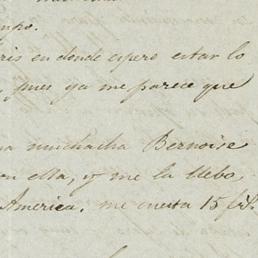 mpo.
ris en donde espero estar lo
, pues ya me parece que
na muchacha Bernoise
on ella, y me la llebo
America. me cuesta 15 frs.